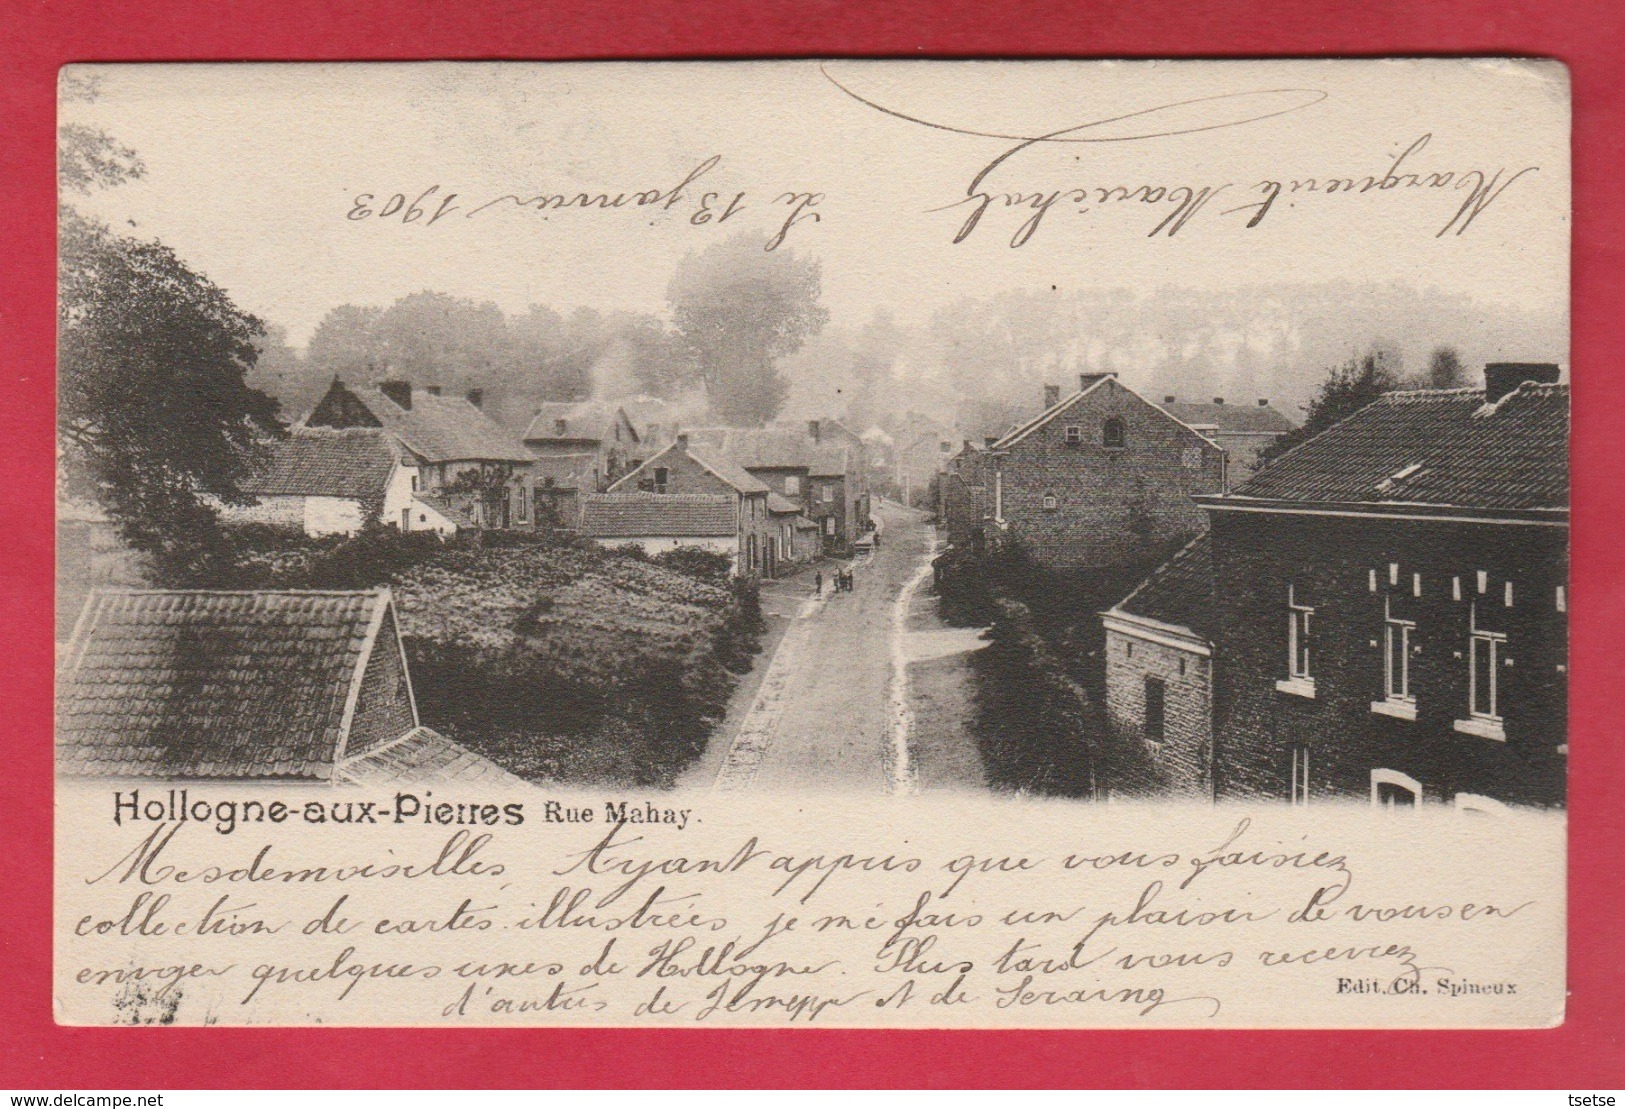 Marguerite Maréchal
Le 13 janvier 1903
Hollogne-aux-Pierres Rue Mahay.
Mesdemoiselles, Ayant appris que vous faisiez
collection de cartes illustrées, je me fais un plaisir de vous en
envoyer quelques unes de Hollogne. Plus tard vous recevrez
d'autres de Jemeppe et de Seraing
Edit. Ch. Spineux
www.delcampe.net
tsetse